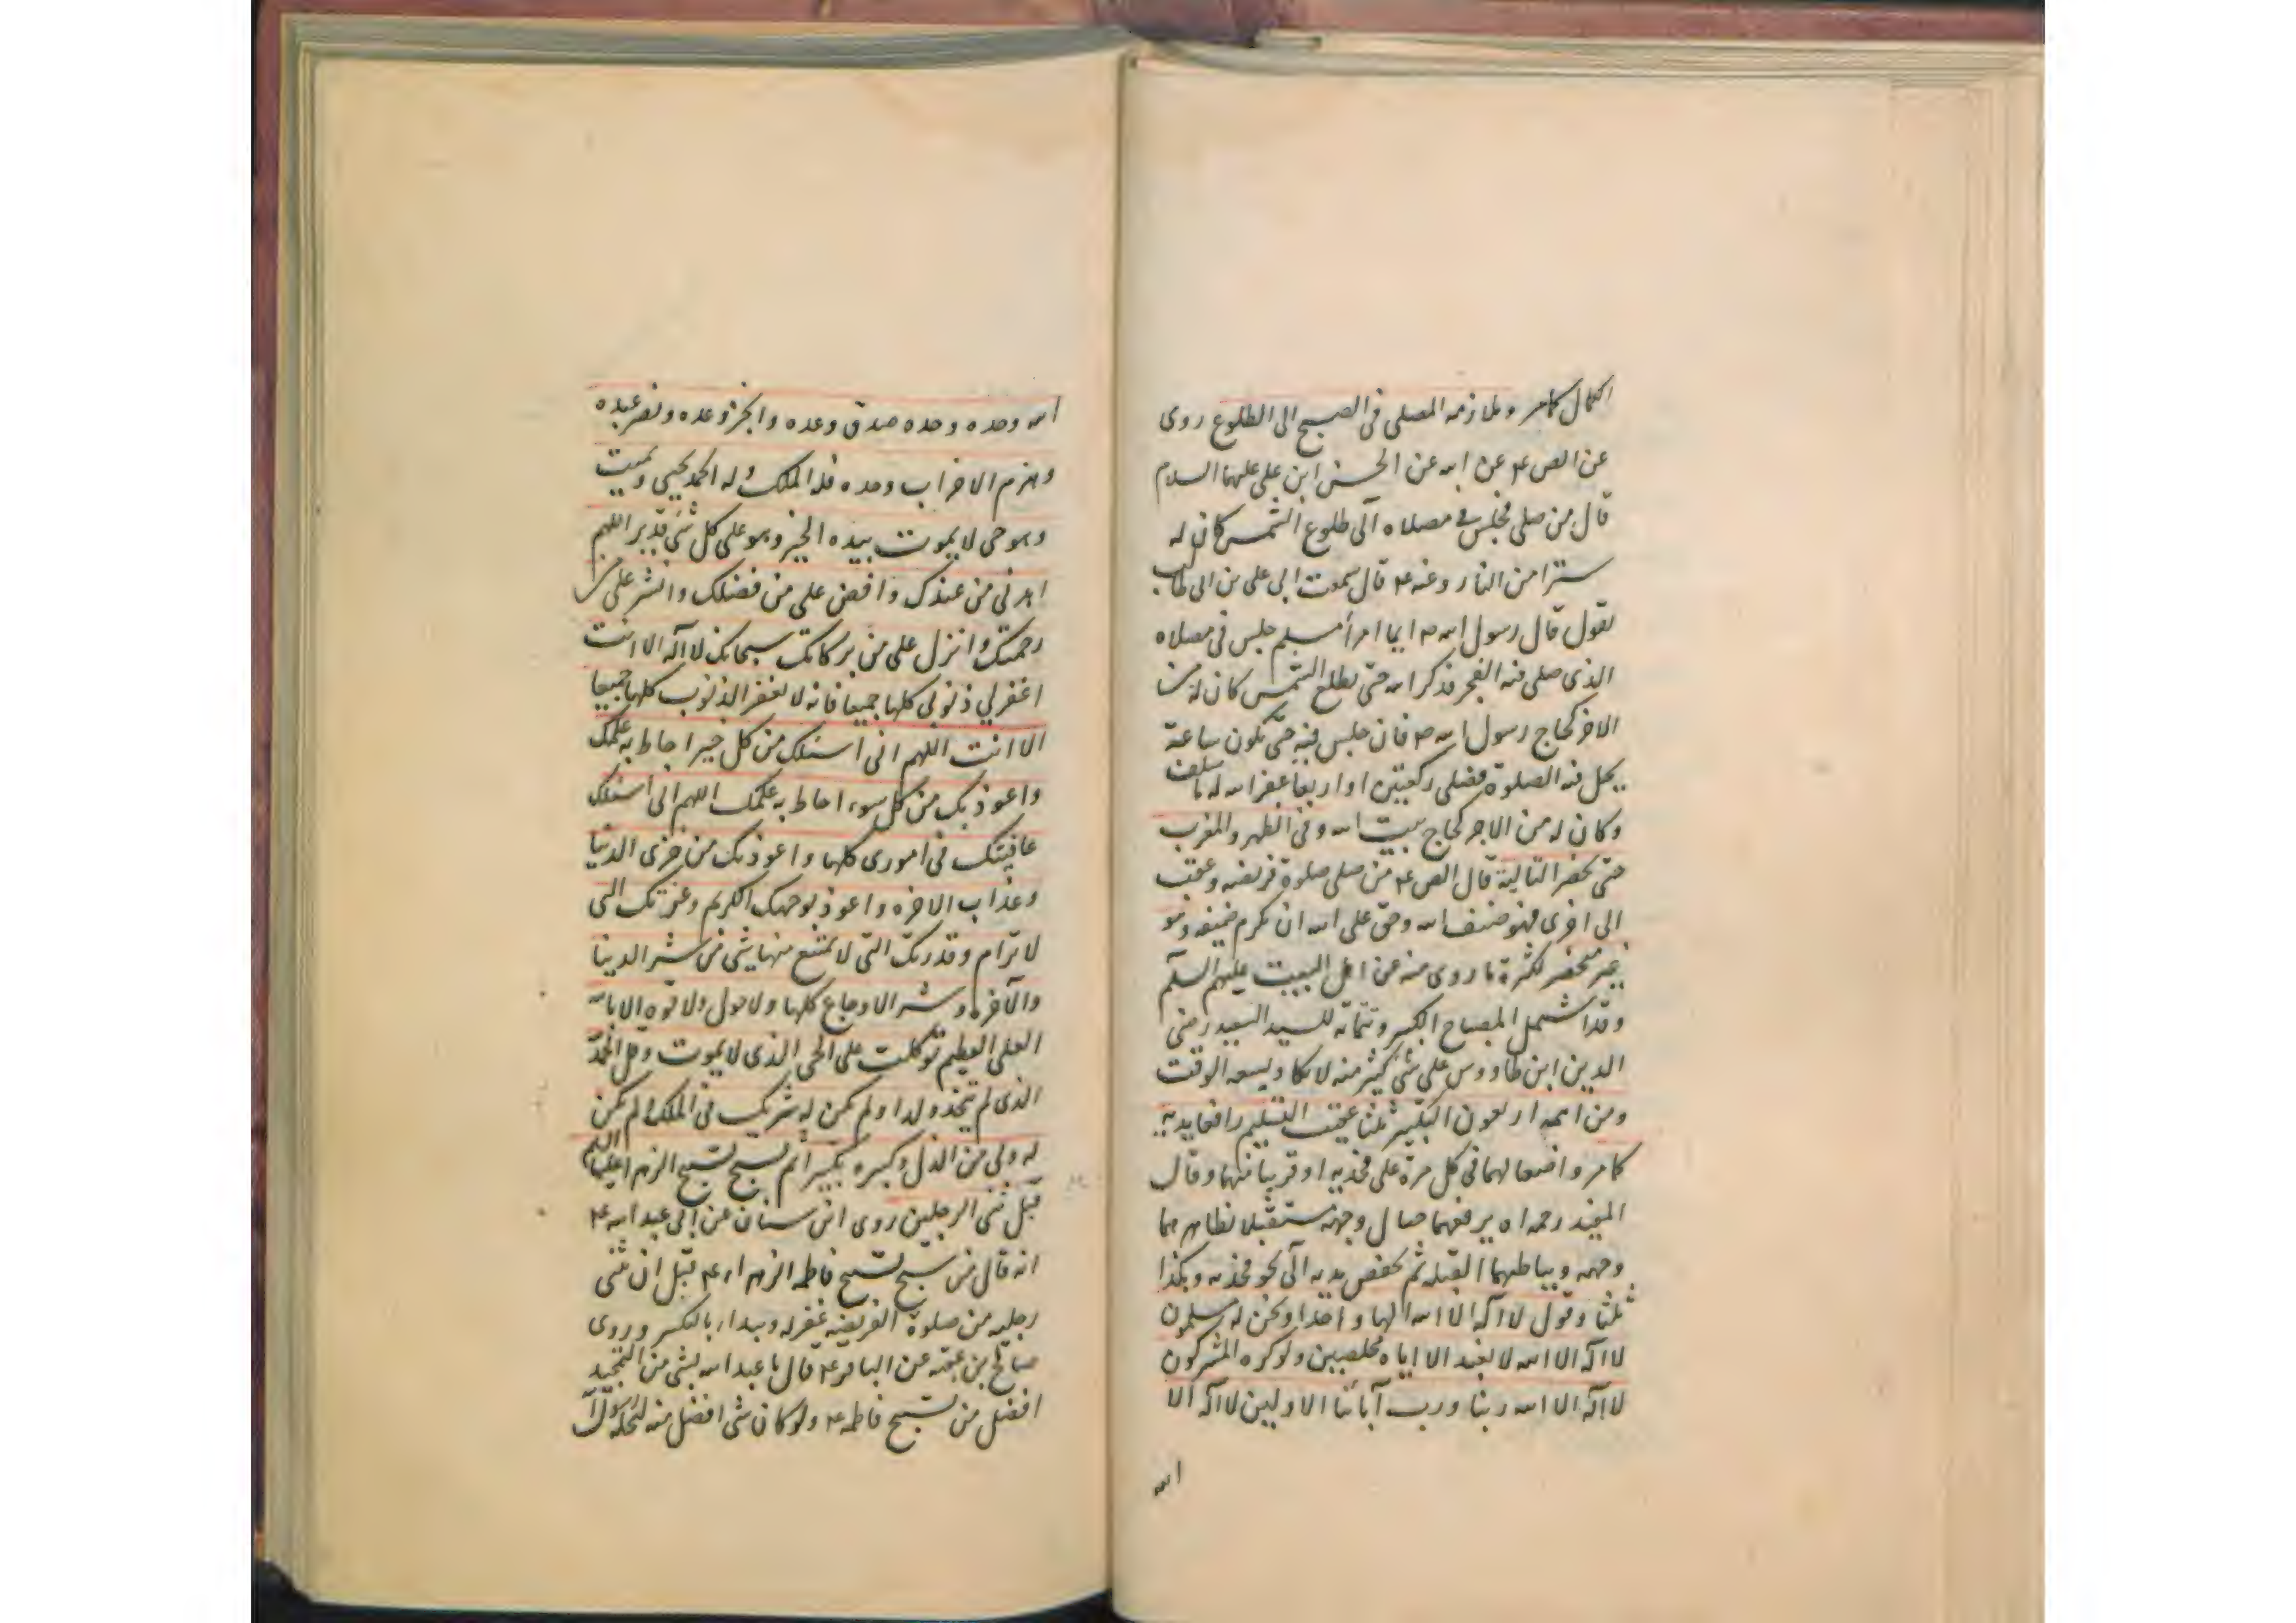 الكمال كما مر وملازمه المصلى فى الصبح الى الطلوع روى
عن الص ع عن ابيه عن الحسن ابن على عليهما السلام
قال من صلى فجلس فى مصلاه الى طلوع الشمس كان له
سترا من النار وعنه ع قال سمعت ابى على بن ابى طالب
يقول قال رسول الله ص ايما امرأ مسلم جلس فى مصلاه
الذى صلى فيه الفجر يذكر الله حتى تطلع الشمس كان له من
الاجر كحاج رسول الله ص فان جلس فيه حتى تكون ساعة
يحل فيه الصلوة فصلى ركعتين او اربعا غفر الله له ما سلف
وكان له من الاجر كحاج بيت الله وفى الظهر والمغرب
حتى تحضر التالية قال الص ع من صلى صلوة فريضه وعقب
الى اخرى فهو ضيف الله وحق على الله ان يكرم ضيفه وهو
غير منحصر لكثرة ما روى منه عن اهل البيت عليهم السلم
وقد اشتمل المصباح الكبير وتتماته للسيد السعيد رضى
الدين ابن طاووس على شئ كثير منه لا يكاد يسعه الوقت
ومن اهمه اربعون التكبير ثلثا عقيب التسليم رافعا يديه
كما مر واضعا لهما فى كل مرة على فخذيه او قريبا منهما وقال
المفيد رحمه الله يرفعهما حيال وجهه مستقبلا بظاهرهما
وجهه وبباطنهما القبله ثم يخفض يديه الى نحو فخذيه وهكذا
ثلثا وقول لا اله الا الله الها واحدا ونحن له مسلمون
لا اله الا الله لا نعبد الا اياه مخلصين ولو كره المشركون
لا اله الا الله ربنا ورب آبائنا الاولين لا اله الا
الله
الله وحده وحده صدق وعده وانجز وعده ونصر عبده
وهزم الاحزاب وحده فله الملك وله الحمد يحيى ويميت
وهو حى لا يموت بيده الخير وهو على كل شئ قدير اللهم
اهدنى من عندك وافض على من فضلك وانشر على من
رحمتك وانزل على من بركاتك سبحانك لا اله الا انت
اغفر لى ذنوبى كلها جميعا فانه لا يغفر الذنوب كلها جميعا
الا انت اللهم انى اسئلك من كل خير احاط به علمك
واعوذ بك من كل سوء احاط به علمك اللهم انى اسئلك
عافيتك فى امورى كلها واعوذ بك من خزى الدنيا
وعذاب الاخره واعوذ بوجهك الكريم وعزتك التى
لا ترام وقدرتك التى لا يمتنع منها شئ من شر الدنيا
والآخره و شر الاوجاع كلها ولا حول ولا قوه الا بالله
العلى العظيم توكلت على الحى الذى لا يموت وقل الحمد
الذى لم يتخذ ولدا ولم يكن له شريك فى الملك ولم يكن
له ولى من الذل وكبره تكبيرا ثم تسبيح تسبيح الزهرا عليها السلم
قبل ثنى الرجلين روى ابن سنان عن ابى عبد الله ع
انه قال من سبح تسبيح فاطمه الزهراء ع قبل ان يثنى
رجليه من صلوة الفريضه غفر له ويبداء بالتكبير وروى
صالح بن عقبه عن الباقر ع قال ما عبد الله بشئ من التمجيد
افضل من تسبيح فاطمه ع ولو كان شئ افضل منه لنحله رسول الله